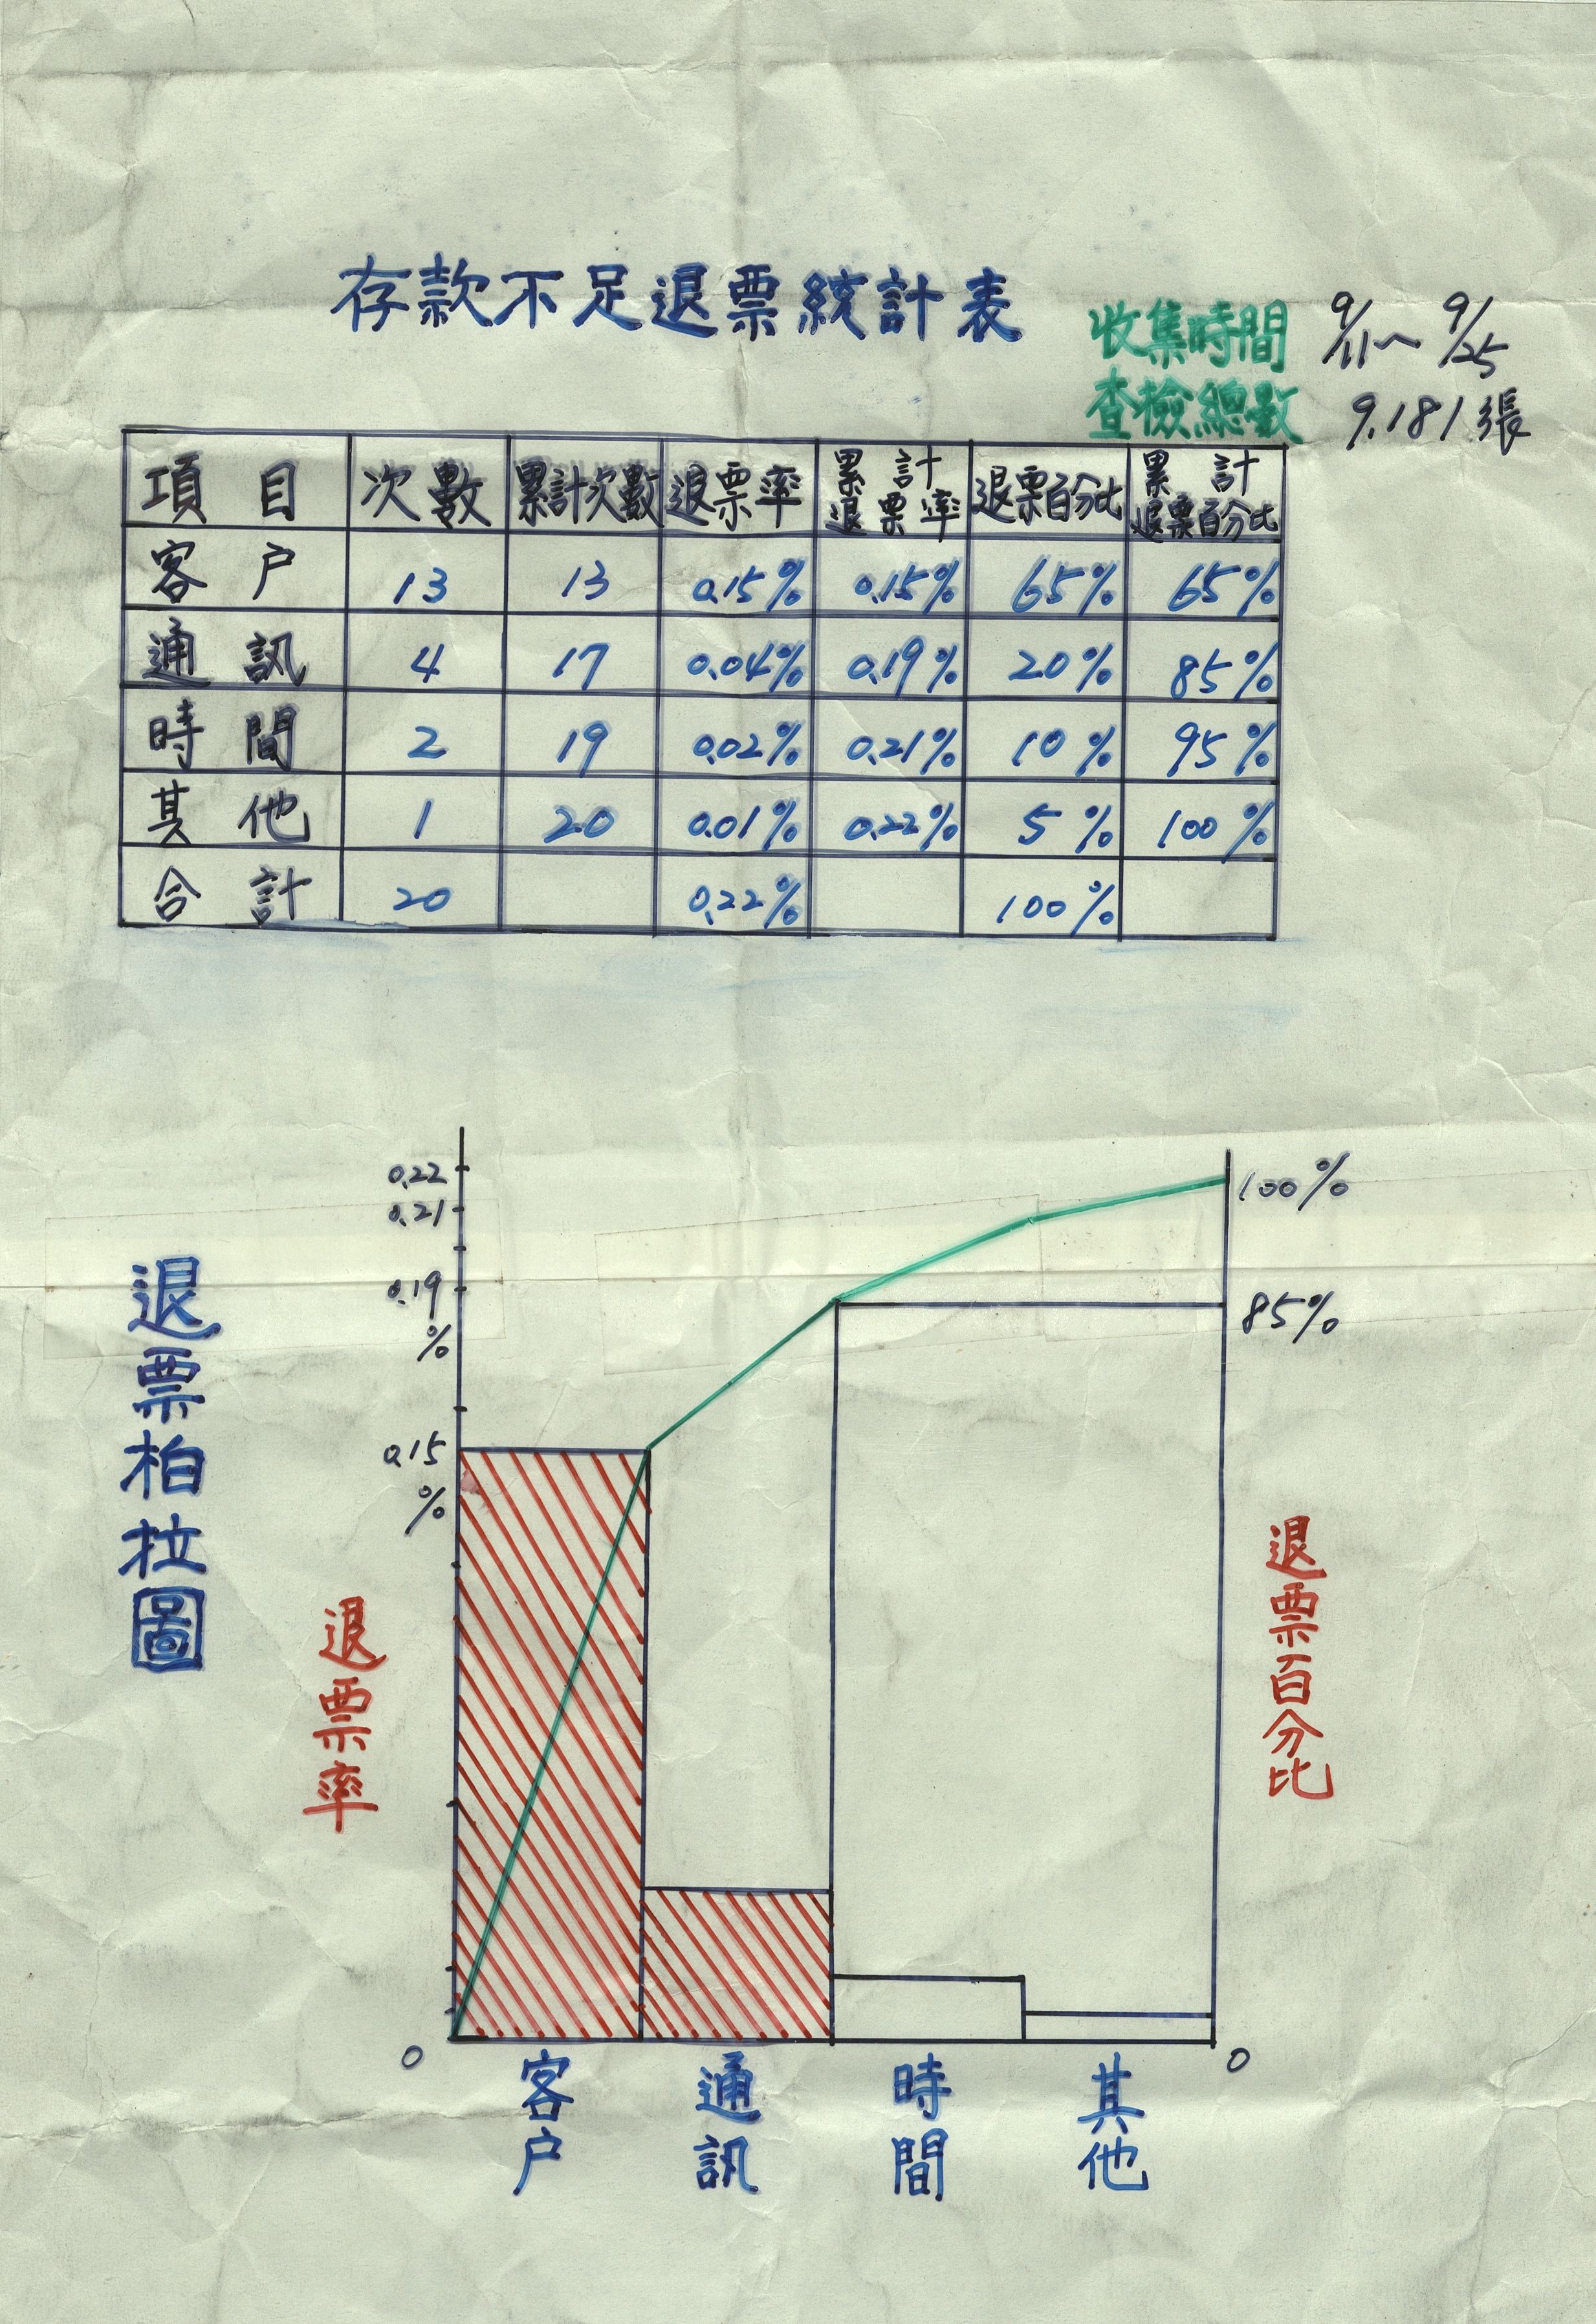 存款不足退票統計表
收集時間 9/11~9/25
查檢總數 9,181張
項目 次數 累計次數 退票率 累計退票率 退票百分比 累計退票百分比
客户 13 13 0.15% 0.15% 65% 65%
通訊 4 17 0.04% 0.19% 20% 85%
時間 2 19 0.02% 0.21% 10% 95%
其他 1 20 0.01% 0.22% 5% 100%
合計 20 0.22% 100%
退票柏拉圖
退票率
0.22
0.21
0.19
%
0.15
%
0
100%
85%
退票百分比
0
客户 通訊 時間 其他